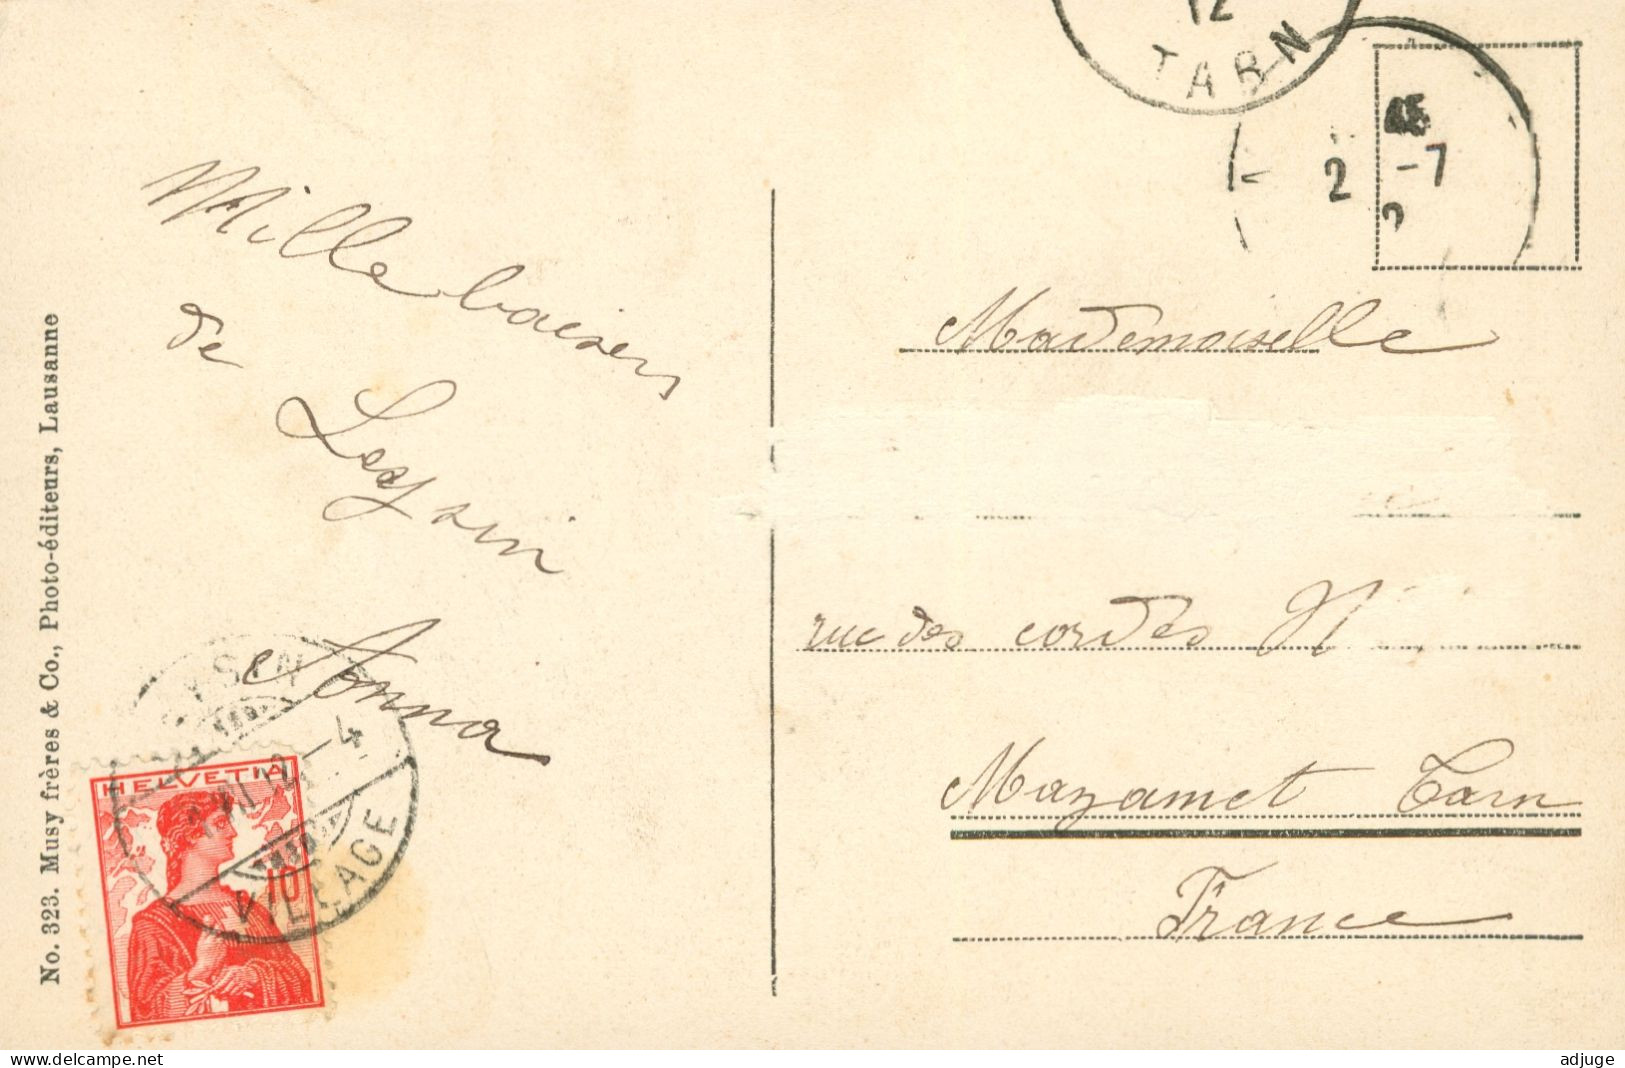 Mille baisers
de
Leysin
Anna
No. 323. Musy frères & Co., Photo-éditeurs, Lausanne
HELVETIA
10
VILLAGE
4
12
TARN
45
2 -7
Mademoiselle
rue des cordes N
Mazamet Tarn
France
www.delcampe.net
adjuge